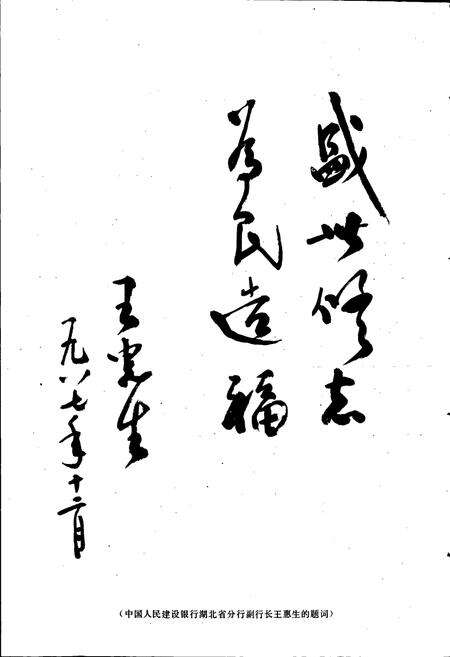 盛世修志
为民造福
王惠生
一九八七年十二月
（中国人民建设银行湖北省分行副行长王惠生的题词）